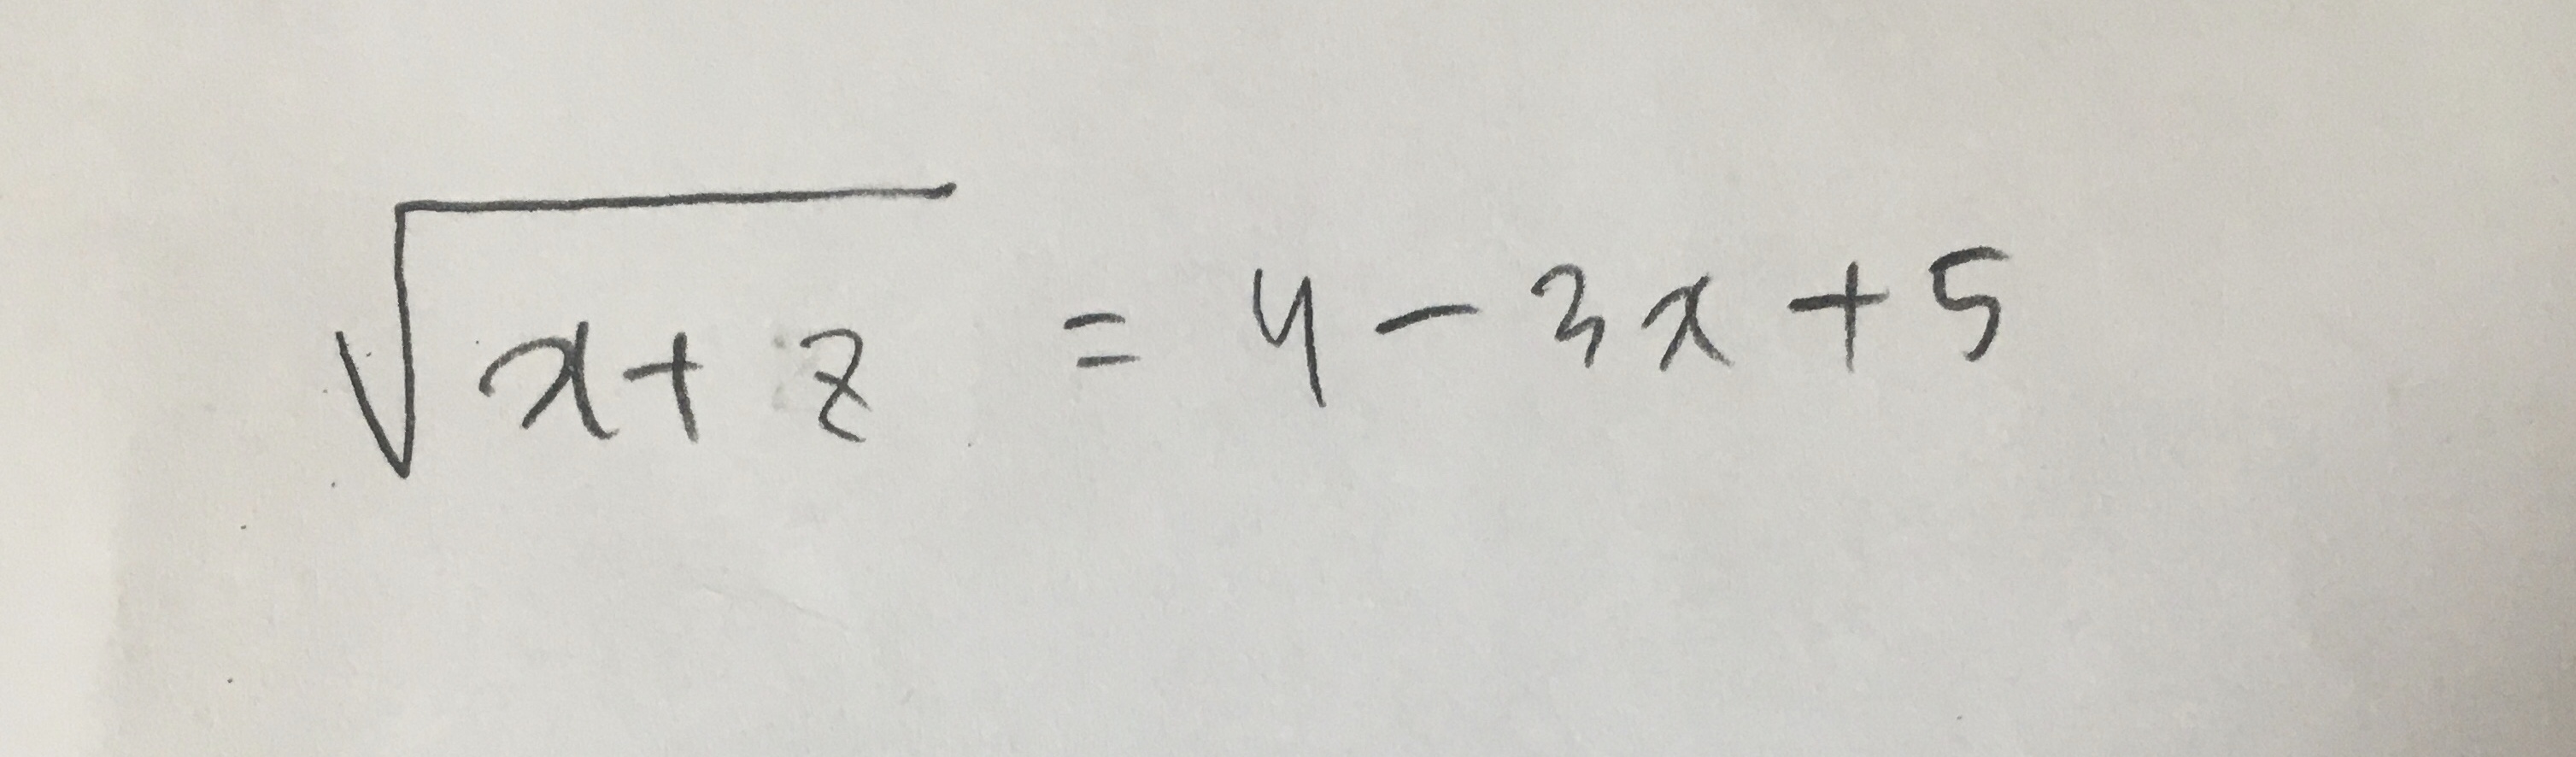 √(x+z) = 4-3x+5